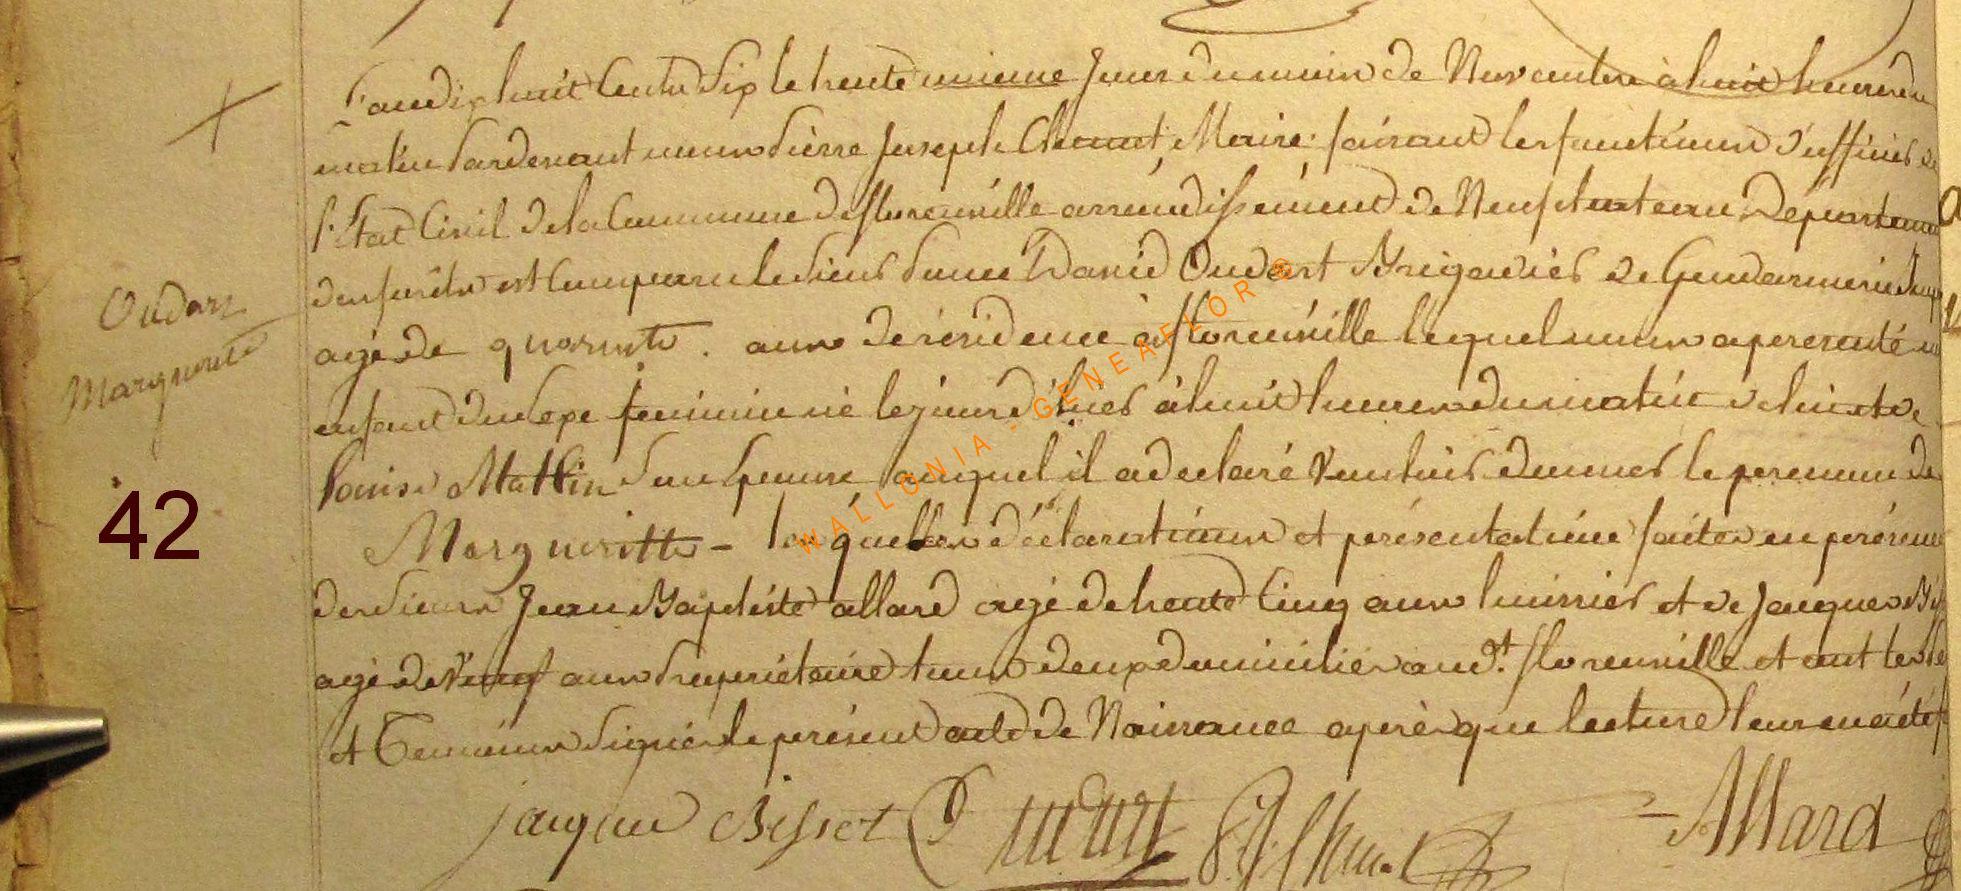 L'an dix huit Cents Six le trente unieme Jour du mois de Novembre à huit heures du
matin Pardevant nous Pierre Joseph Maire faisant les fonctions d'officier de
l'Etat Civil de la Commune de florenville arrondissement de Neufchateau Departement
des forêts est Comparu le Sieur David Oudart Brigadier de Gendarmerie
agé de quarante ans de résidence à florenville lequel nous a presenté un
enfant du Sexe feminin né le jour d'hier à huit heures du matin de lui et de
Louise Mathin Son Epouse auquel il a declaré Vouloir donner le prenom de
Margueritte - lesquelles déclaration et présentation faites en présence
des Sieurs Jean Baptiste allard agé de trente Cinq ans huissier et de Jacques
agé de ans Propriétaire tous deux domiciliés aud.t florenville et ont les
et Temoins Signé le présent acte de Naissance après que lecture leur en a été
Jacques Bisset Oudart Allard
Oudart
Margueritte
42
WALLONIA - GENEAFLOR ©